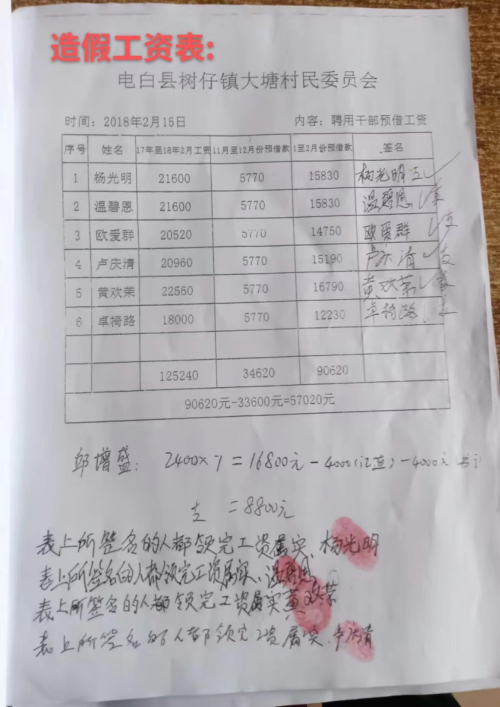 造假工资表:
电白县树仔镇大塘村民委员会
时间：2018年2月15日 内容：聘用干部预借工资
序号 姓名 17年至18年2月工资 11月至12月份预借款 1至2月份预借款 签名
1 杨光明 21600 5770 15830 杨光明
2 温碧恩 21600 5770 15830 温碧恩
3 欧爱群 20520 5770 14750 欧爱群
4 卢庆清 20960 5770 15190 卢庆清
5 黄欢荣 22560 5770 16790 黄欢荣
6 卓椅路 18000 5770 12230 卓椅路
125240 34620 90620
90620元-33600元=57020元
邱增盛： 2400×7=16800元-4000(-4000元
=8800元
表上所签名的人都领完工资属实、杨光明
表上所签名的人都领完工资属实、温碧恩
表上所签名的人都领完工资属实黄欢荣
表上所签名的人都领完工资属实.卢庆清